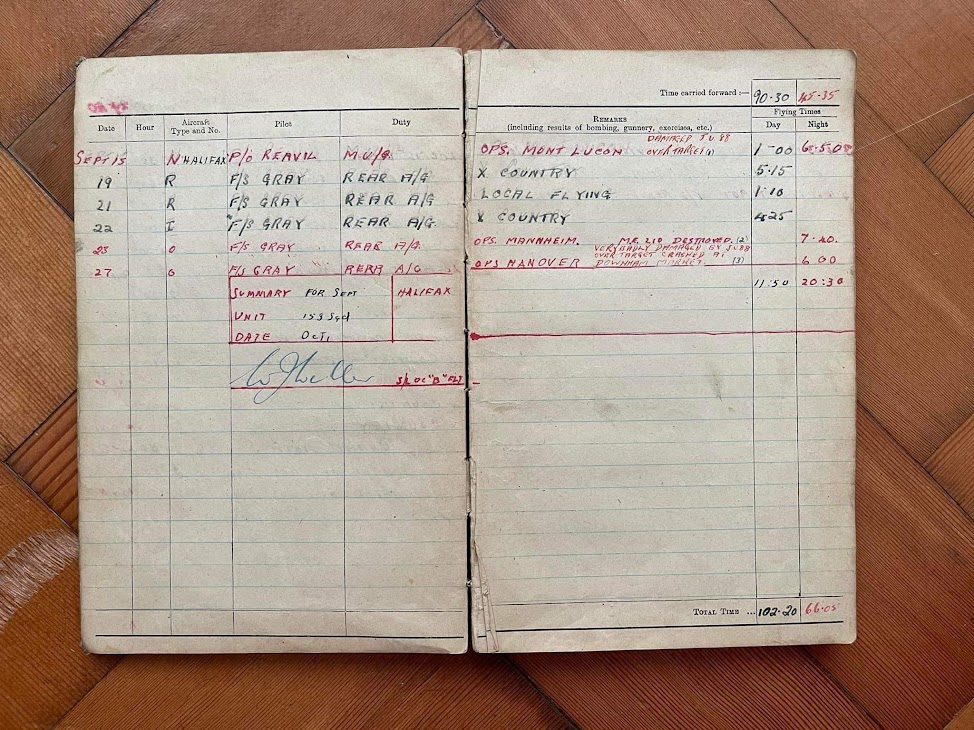 Time carried forward :— 90·30 45·35
Flying Times
Date Hour Aircraft Type and No. Pilot Duty Remarks (including results of bombing, gunnery, exercises, etc.) Day Night
DAMAGED JU.88
SEPT 15 N HALIFAX P/O REAVIL M.U/G. OPS. MONT LUCON OVER TARGET (1) 1·00 6·50
19 R F/S GRAY REAR A/G X COUNTRY 5·15
21 R F/S GRAY REAR A/G LOCAL FLYING 1·10
22 I F/S GRAY REAR A/G. X COUNTRY 4·25
23 O F/S GRAY REAR A/G. OPS. MANNHEIM. M.E. 210 DESTROYED. (2) 7·40.
VERY BADLY DAMAGED BY JU88
OVER TARGET CRASHED AT
27 O F/S GRAY REAR A/G OPS HANOVER DOWNHAM MARKET. (3) 6 00
SUMMARY FOR SEPT HALIFAX 11·50 20:30
UNIT Sqd
DATE OCT 1
S/L OC "B" FLT
Total Time ... 102·20 66·05